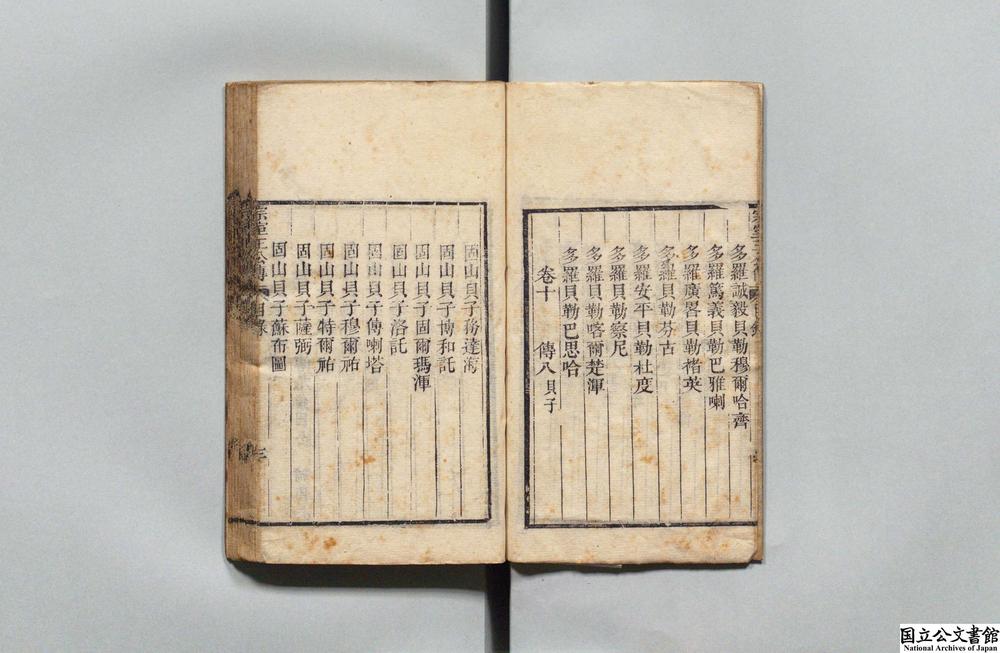 多羅誠毅貝勒穆爾哈齊
多羅篤義貝勒巴雅喇
多羅廣畧貝勒褚英
多羅貝勒芬古
多羅安平貝勒杜度
多羅貝勒察尼
多羅貝勒喀爾楚渾
多羅貝勒巴思哈
卷十 傳八 貝子
固山貝子務達海
固山貝子博和託
固山貝子固爾瑪渾
固山貝子洛託
固山貝子傅喇塔
固山貝子穆爾祐
固山貝子特爾祐
固山貝子薩弼
固山貝子蘇布圖
宗室王公傳 目錄 三
国立公文書館
National Archives of Japan